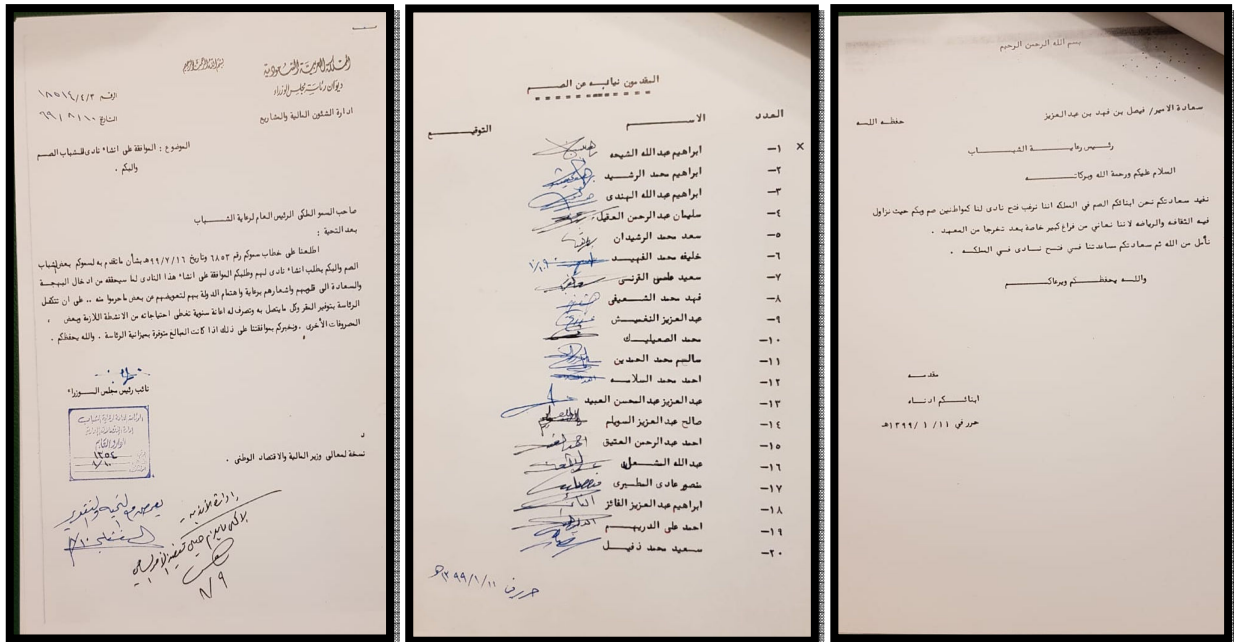 بسم الله الرحمن الرحيم
سعادة الامير/ فيصل بن فهد بن عبدالعزيز حفظه اللـه
رئـيس رعايـة الشبـــاب
السلام عليكم ورحمة الله وبركاتـــه
نفيد سعادتكم نحن ابنائكم الصم في المملكه اننا نرغب فتح نادى لنا كمواطنين صم وبكم حيث نزاول
فيه الثقافه والرياضه لاننا نعاني من فراغ كبير خاصة بعد تخرجنا من المعهد .
نأمل من الله ثم سعادتكم مساعدتنا فـي فتـح نـــادى فـي المملكـه .
واللــه يحفظـــكم ويرعاكـــم
مقدمـــه
ابنائـــكم ادنـــاه
حرر في ١١/ ١/ ١٣٩٩هـ
المقدمون نيابـه عن الصـــم
العدد الاســـــم التوقيـــع
١- ابراهيم عبدالله الشيحه
٢- ابراهيم محمد الرشـيد
٣- ابراهيم عبدالله الهندى
٤- سليمان عبدالرحمن العقيل
٥- سعد محمد الرشيدان
٦- خليفه محمد الفهيــد
٧- سعيد القرنـي
٨- فهد محمد الشـعيفى
٩- عبدالعزيز النغميـــش
١٠- محمد الصعيليــك
١١- سالـم محمد الحمدين
١٢- احمد محمد السلامـــه
١٣- عبدالعزيز عبدالمحسن العبيد
١٤- صالح عبدالعزيز السويلم
١٥- احمد عبدالرحمن العتيق
١٦- عبدالله الشـــعلان
١٧- منصور عادى المطـيرى
١٨- ابراهيم عبدالعزيز الفائز
١٩- احمد على الدريهـــم
٢٠- سـعيد محمد ذفيـــل
حرر في ١١/١/١٣٩٩هـ
بسم الله الرحمن الرحيم
المملكة العربية السعودية
ديوان رئاسة مجلس الوزراء
ادارة الشئون المالية والمشاريع
الموضوع : الموافقة على انشاء نادى للشباب الصـم
والبكم .
صاحب السمو الملكى الرئيس العام لرعاية الشـــباب
بعد التحية :
اطلعنا على خطاب سموكم رقم ٦٨٥٣ وتاريخ ٩٩/٢/١٦هـ بشأن ماتقدم به لسموكم بعض الشباب
الصم والبكم بطلب انشاء نادى لهم وطلبكم الموافقة على انشاء هذا النادى لما سيحققه من ادخال البهجـة
والسعادة الى قلوبهم واشعارهم برعاية واهتمام الدولة بهم لتعويضهم عن بعض ماحرموا منه .. على ان تتكفل
الرئاسة بتوفير المقر وكل مايتصل به وتصرف له اعانة سنوية تغطى احتياجاته من الانشطة اللازمة وبعض
المصروفات الأخرى . ونخبركم بموافقتنا على ذلك اذا كانت المبالغ متوفرة بميزانية الرئاسة . والله يحفظكم .
نائب رئيس مجلس الـــوزراء
نسخة لمعالى وزير المالية والاقتصاد الوطنى .